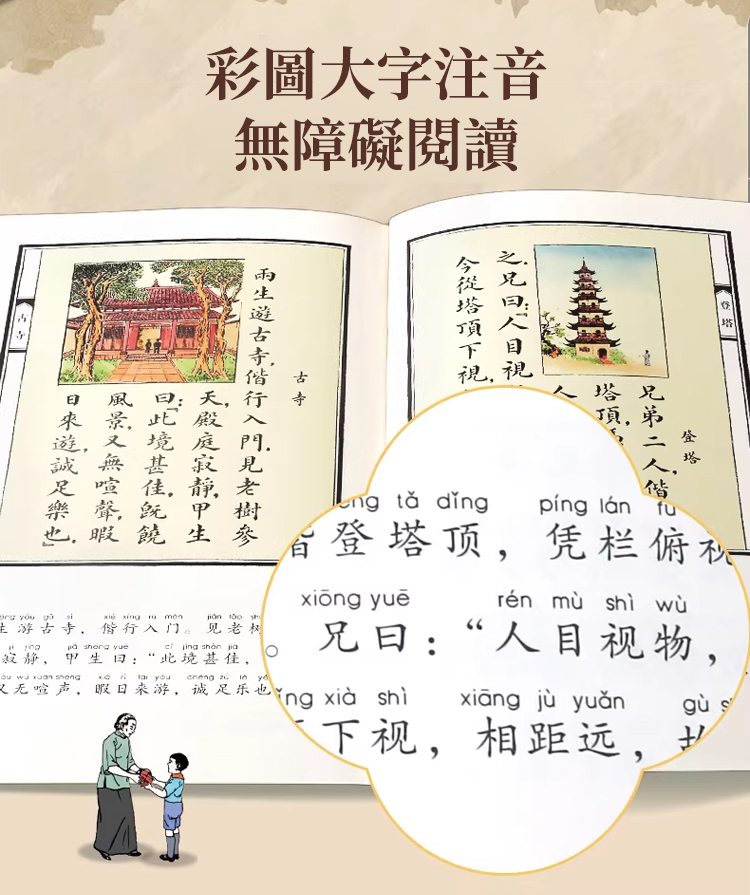 彩圖大字注音
無障礙閱讀
登塔
登塔
兄弟二人,偕
塔頂,
人
之.兄曰:「人目視
今從塔頂下視,
古寺
兩生遊古寺,偕行入門.見老樹參
天,殿庭寂靜,甲生
曰:「此境甚佳,旣饒
風景,又無喧聲,暇
日來遊,誠足樂也」
古寺
yóu gǔ sì xié xíng rù mén jiàn lǎo
生游古寺，偕行入门。见老树
jì jìng jiǎ shēng yuē cǐ jìng shèn jiā
寂静，甲生曰：“此境甚佳，
yòu wú xuān shēng xiá rì lái yóu chéng zú lè yě
又无喧声，暇日来游，诚足乐也
tǎ dǐng píng lán fǔ
登塔顶，凭栏俯视
xiōng yuē rén mù shì wù
。兄曰：“人目视物，
xià shì xiāng jù yuǎn gù
下视，相距远，故